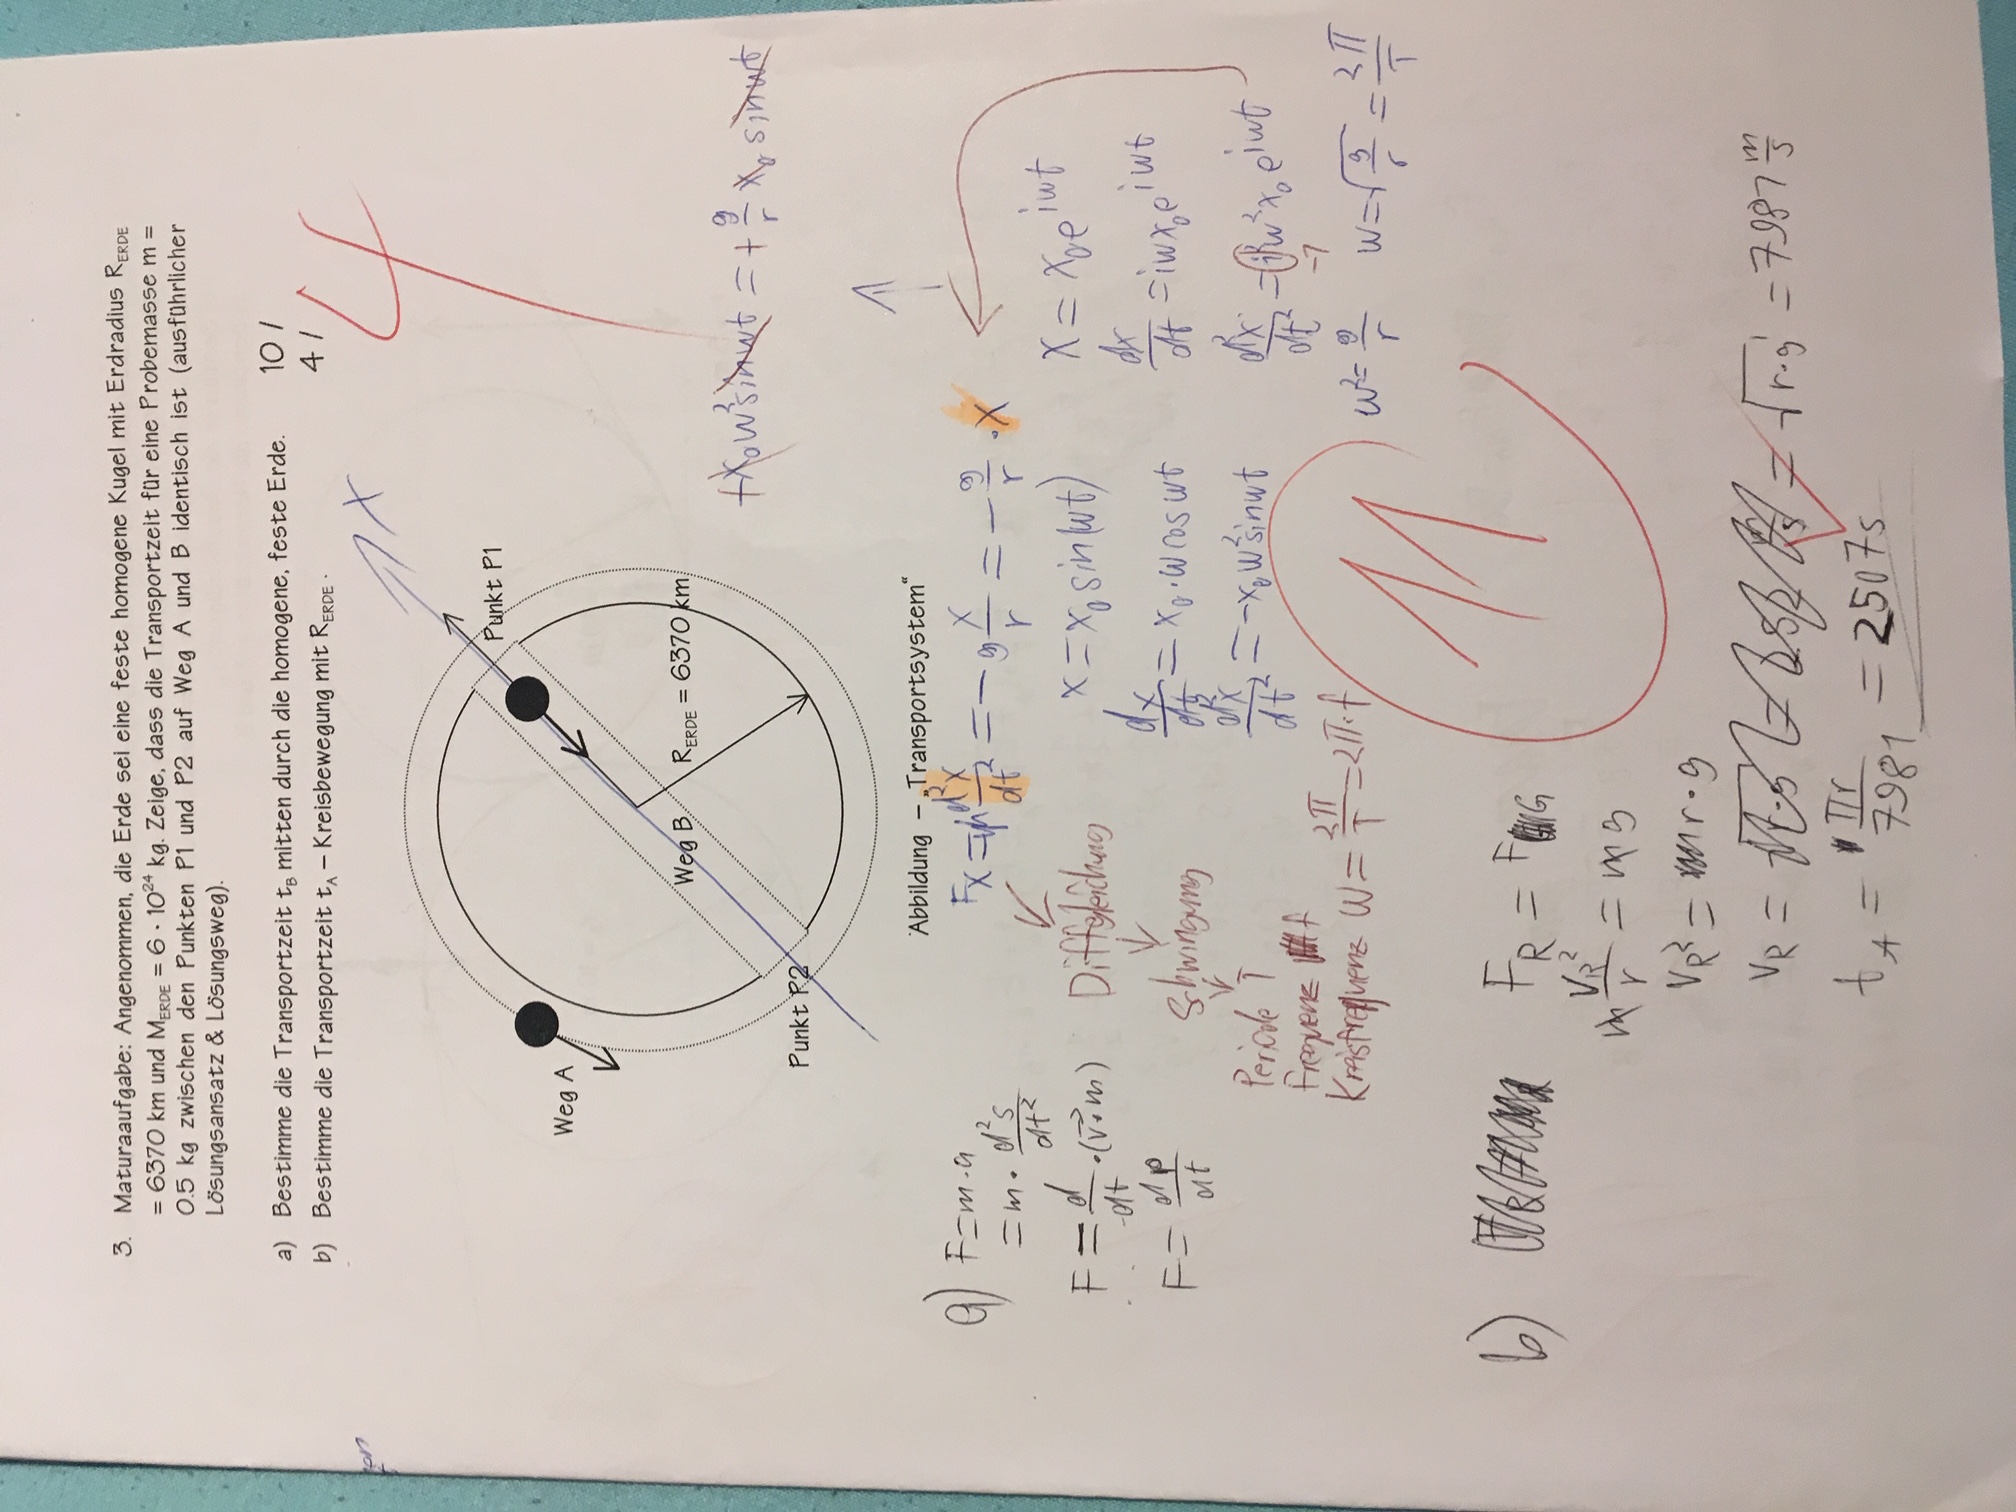 3. Maturaaufgabe: Angenommen, die Erde sei eine feste homogene Kugel mit Erdradius R_ERDE
= 6370 km und M_ERDE = 6 · 10²⁴ kg. Zeige, dass die Transportzeit für eine Probemasse m =
0.5 kg zwischen den Punkten P1 und P2 auf Weg A und B identisch ist (ausführlicher
Lösungsansatz & Lösungsweg).
a) Bestimme die Transportzeit t_B mitten durch die homogene, feste Erde. 10 /
b) Bestimme die Transportzeit t_A – Kreisbewegung mit R_ERDE . 4 /
4
X
Punkt P1
Weg A
Weg B
R_ERDE = 6370 km
Punkt P2
+x₀w²sinwt = + g/r x₀ sinwt
Abbildung – „Transportsystem“
a) F=m·a
= m · d²s/dt²
F = d/dt ·(v⃗·m)
F = dp/dt
Fx = m d²x/dt² = - g x/r = - g/r · x
Diffgleichung
Schwingung
Periode T
Frequenz f
Kreisfrequenz w = 2π/T = 2π·f
x = x₀ sin(wt)
dx/dt = x₀·w cos wt
d²x/dt² = -x₀w²sinwt
x = x₀e^iwt
dx/dt = iwx₀e^iwt
d²x/dt² = i²w²x₀e^iwt
-1
w² = g/r w = √g/r = 2π/T
11
b) F_R = F_G
m v_R²/r = m g
v_R² = r·g
v_R = √r·g = 7981 m/s
t_A = πr/7981 = 2507s